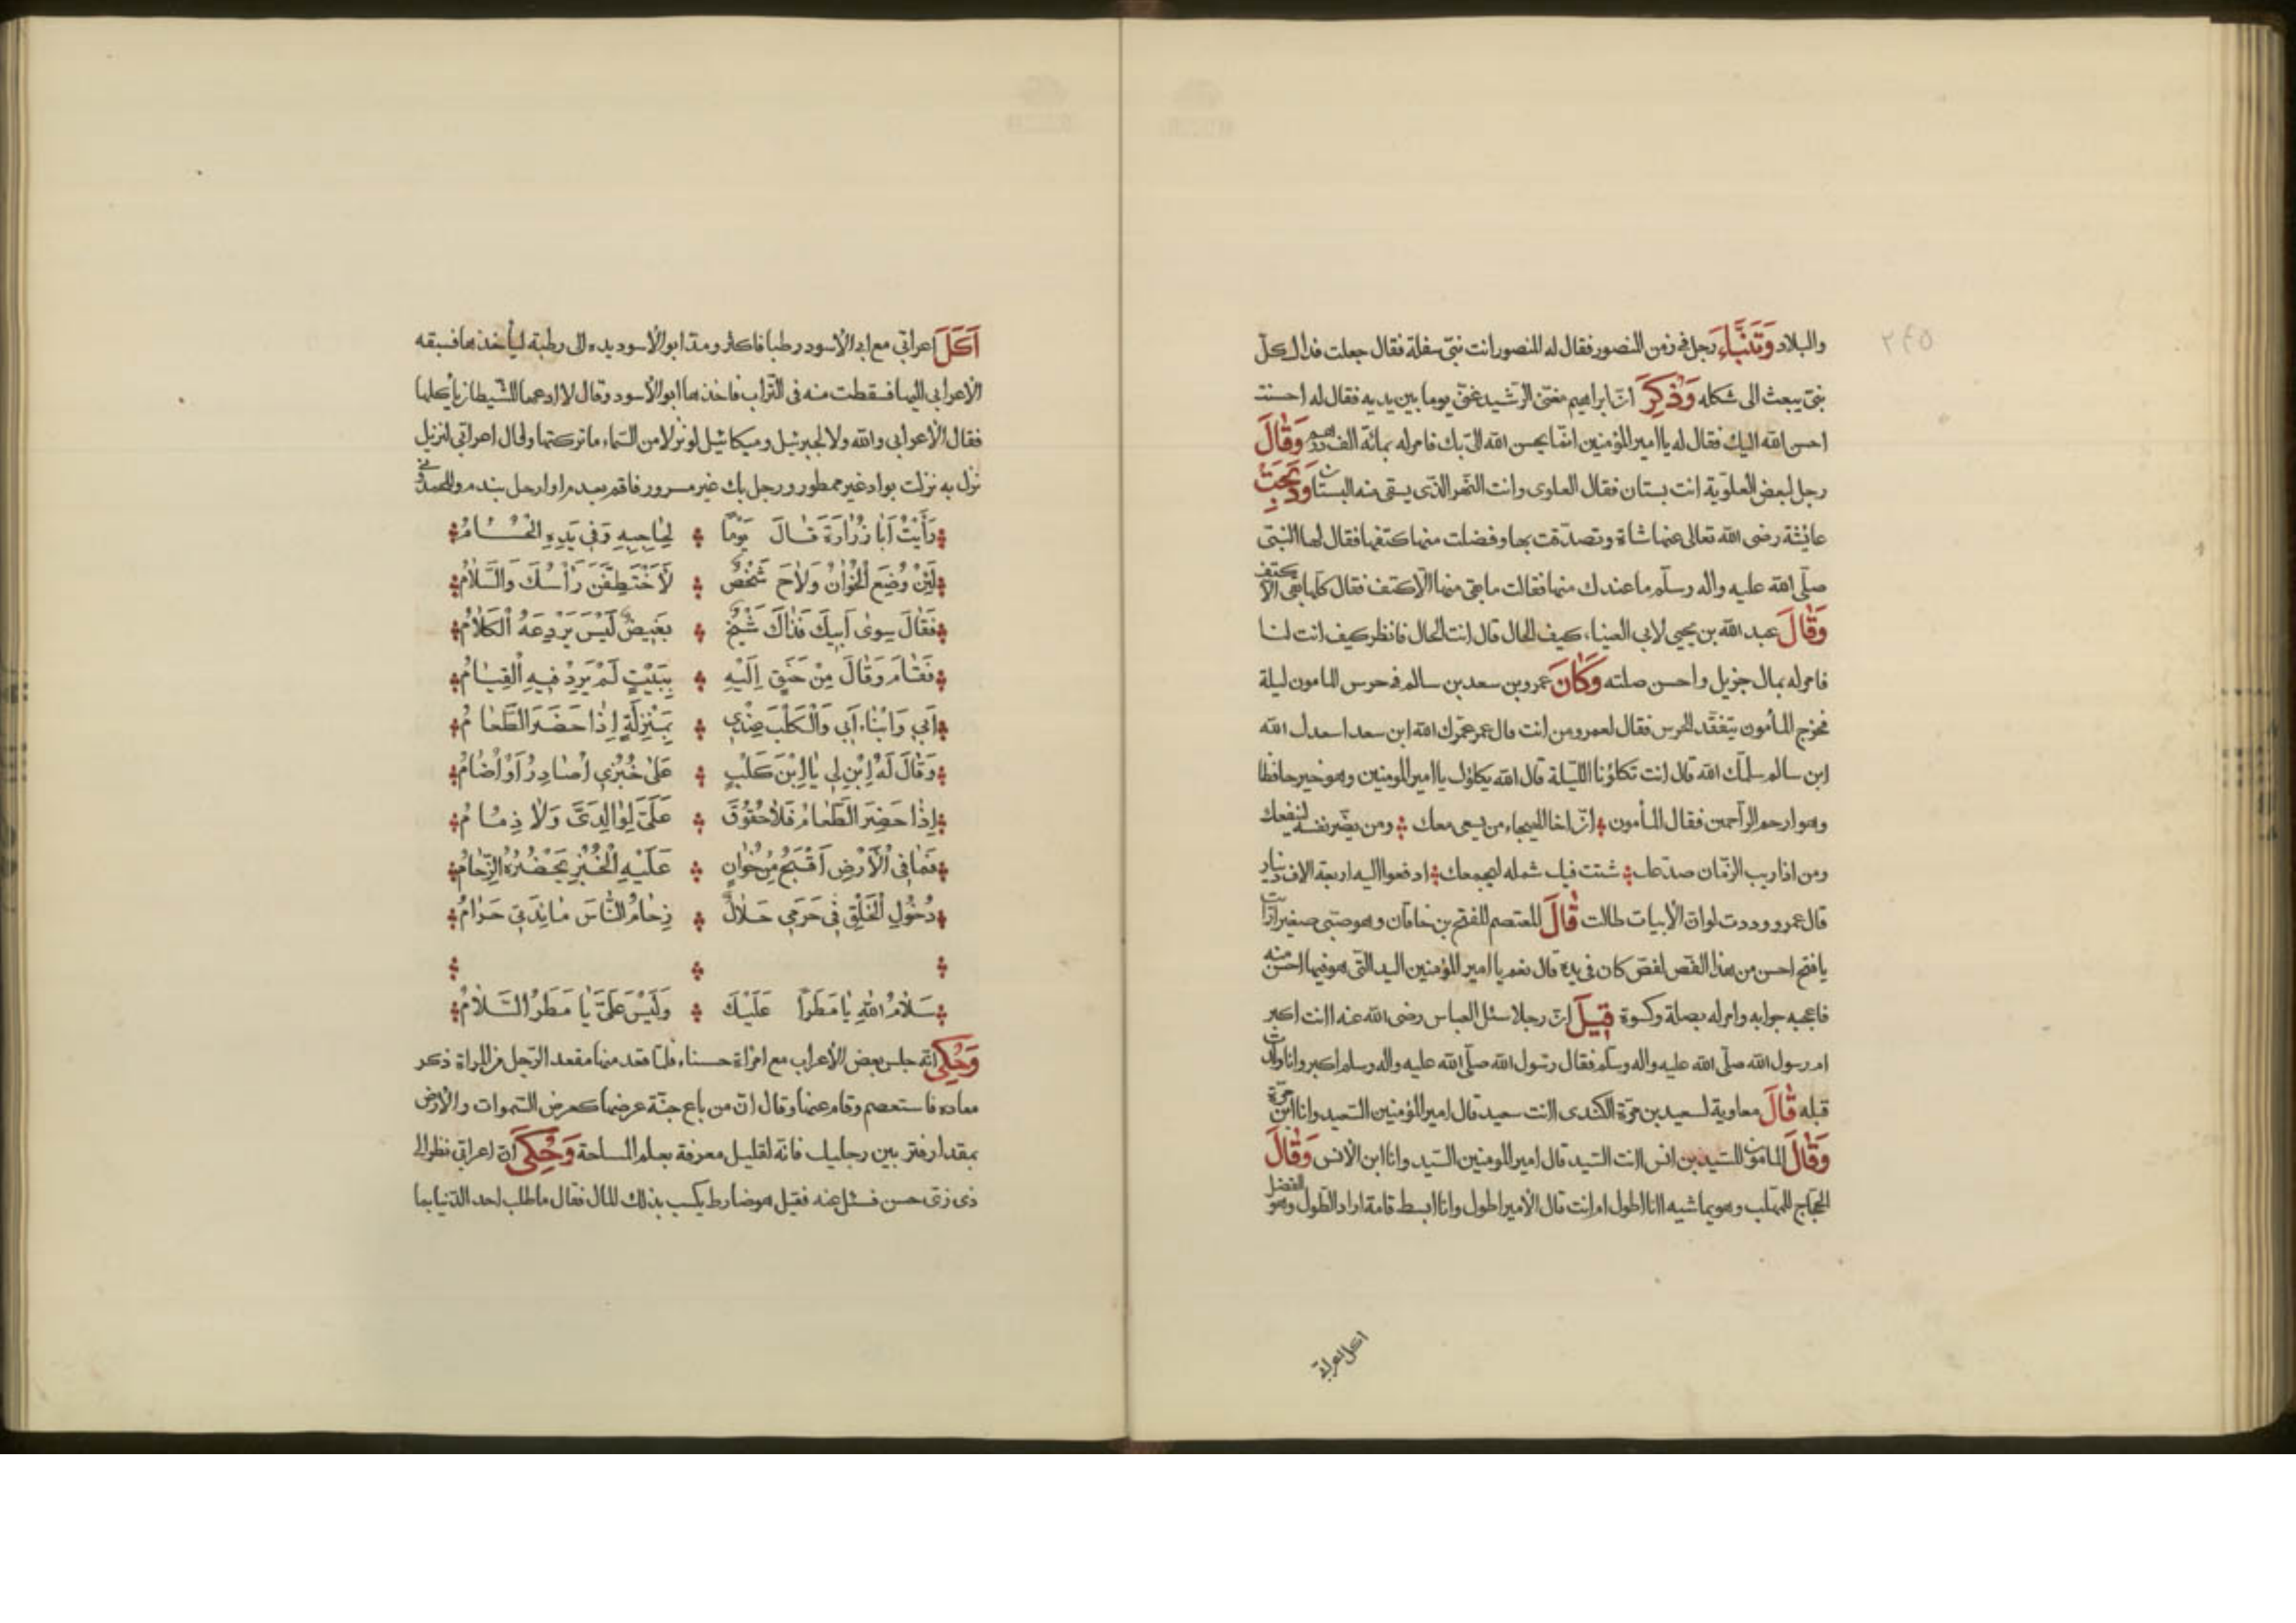 ٢٤٥
والبلاد وَتَنَبَّاءَ رجل فى زمن المنصور فقال له المنصور انت نبىّ سفلة فقال جعلت فداك كلّ
نبىّ يبعث الى شكله وَذُكِرَ انّ ابراهيم مغنىّ الرّشيد غنّى يوما بين يديه فقال له احسنت
احسن الله اليك فقال له يا امير المؤمنين انّما يحسن الله الىّ بك فامر له بمائة الف درهم وَقَالَ
رجل لبعض العلوية انت بستان فقال العلوى وانت النّهر الذّى يسقى منه البستان وَذَبَحَتْ
عائشة رضى الله تعالى عنها شاة وتصدّقت بها وفضلت منها كتفها فقال لها النّبىّ
صلّى الله عليه واله وسلّم ما عندك منها فقالت ما بقى منها الّا كتف فقال كلّها بقى الّا كتف
وَقَالَ عبد الله بن يحيى لابى العيناء كيف الحال قال انت الحال فانظر كيف انت لنا
فامر له بمال جزيل واحسن صلته وَكَانَ عمرو بن سعد بن سالم فى حرس المامون ليلة
فخرج المأمون يتفقّد الحرس فقال لعمرو من انت قال عمر عمّرك الله ابن سعد اسعدك الله
ابن سالم سلّمك الله قال انت تكلؤنا اللّيلة قال الله يكلؤك يا امير المومنين وهو خير حافظا
وهو ارحم الرّاحمين فقال المأمون انّ اخا الهيجاء من يسعى معك ومن يضّر نفسه لينفعك
ومن اذا ريب الزّمان صدّعك شتت فيك شمله ليجمعك ادفعوا اليه اربعة الاف دينار
قال عمرو وددت لو انّ الأبيات طالت قَالَ المعتصم للفتح بن خاقان وهو صبّى صغير أرأيت
يا فتح احسن من هذا الفصّ لفصّ كان فى يده قال نعم يا امير المؤمنين اليد التّى هو فيها احسن منه
فاعجبه جوابه وامر له بصلة وكسوة قِيلَ انّ رجلا سئل العباس رضى الله عنه اانت اكبر
ام رسول الله صلّى الله عليه واله وسلّم فقال رسول الله صلّى الله عليه واله وسلم اكبر وانا ولدت
قبله قَالَ معاوية لسعيد بن مرّة الكندى اانت سعيد قال امير المؤمنين السّعيد وانا ابن مرّة
وَقَالَ المامون للسّيد بن انس اانت السّيد قال امير المومنين السّيد وانا ابن الأنس وَقَالَ
الحجّاج للمهلّب وهو يماشيه اانا اطول ام انت قال الأمير اطول وانا ابسط قامة اراد الطّول وهو الفضل
اكل اعرابى
اَكَلَ اعرابّى مع ابى الأسود رطبا فاكثر ومدّ ابو الأسود يده الى رطبة ليأخذها فسبقه
الأعرابى اليها فسقطت منه فى التّراب فاخذها ابو الأسود وقال لا ادعها للشّيطان يأكلها
فقال الأعرابى والله ولا لجبرئيل وميكائيل لو نزلا من السّماء ما تركتها وقال اعرابّى لنزيل
نزل به نزلت بواد غير ممطور ورجل بك غير مسرور فاقم بعدم او ارحل بندم وللحمدونى
رَأَيْتُ اَبَا زُرَارَةَ قَالَ يَوْمًا لِحَاجِبِهِ وَفِى يَدِهِ الْحُسَامُ
لَئِنْ وُضِعَ الْخُوَانُ وَلَاحَ شَخْصٌ لَأَخْتَطِفَنَ رَأْسُكَ وَالسَّلَامُ
فَقَالَ سِوى اَبِيكَ فَذَاكَ شَيْخٌ بَغِيضٌ لَيْسَ يَرْدِعَهُ الْكَلَامُ
فَقَامَ وَقَالَ مِنْ حَنَقٍ اِلَيْهِ بِبَيْتٍ لَمْ يَرِدْ فِيهِ الْقِيَامُ
اَبِى وَابْنَاءُ اَبِى وَالْكَلْبُ عِنْدِى بِمَنْزِلَةٍ اِذَا حَضَرَ الطَّعَامُ
وَقَالَ لَهُ اِبْنِ لِى يَا اِبْنَ كَلْبٍ عَلى خُبْزِى اُصَادِرُ اَوْ اُضَامُ
اِذَا حَضَرَ الطَّعَامُ فَلَا حُقُوقَ عَلَىَّ لِوَالِدَىَّ وَلَا ذِمَامُ
فَمَا فِى الْأَرْضِ اَقْبَحُ مِنْ خُوَانٍ عَلَيْهِ الْخُبْزُ يَحْضُرُهُ الزِّحَامُ
دُخُولُ الْخَلْقِ فِى حَرَمِى حَلَالٌ زِحَامُ النَّاسَ مَائِدَتِى حَرَامُ
سَلَامُ اللهِ يَا مَطَرًا عَلَيْكَ وَلَيْسَ عَلَيْكَ يَا مَطَرُ السَّلَامُ
وَحُكِىَ انّه جلس بعض الأعراب مع امرأة حسناء فلمّا قعد منها مقعد الرّجل من المراة ذكر
معاده فاستعصم وقام عنها وقال انّ من باع جنّة عرضها كعرض السّموات والأرض
بمقدار فتر بين رجليك فانّه لقليل معرفة بعلم المساحة وَحُكِىَ انّ اعرابّى نظر الى
ذى زىّ حسن فسئل عنه فقيل هو ضارط يكسب بذلك المال فقال ما طلب احد الدّنيا بما